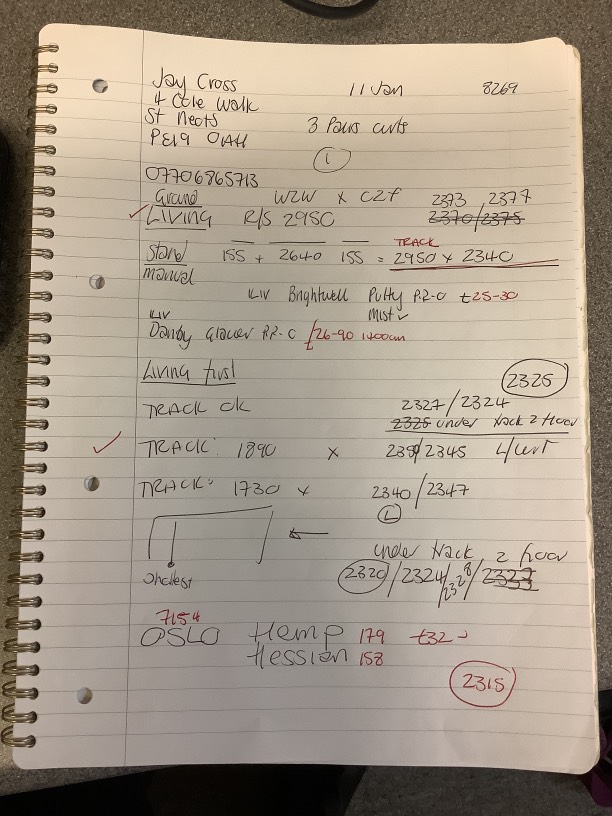 Jay Cross 11 Jan 8269
4 Cole Walk
St Neots 3 Pairs curts
PE19 0AH
1
07706865713
Ground W2W x C2F 2373 / 2377
LIVING R/S 2950 2370/2375
Stand 155 + 2640 155 = TRACK 2950 x 2340
manual
LIV Brightwell Putty P.R-0 £25-30
Mist
LIV
Danby Glacier P.R-0 £26-90 1400cm
Living first 2325
TRACK OK 2327/2324
2325 under track 2 floor
TRACK: 1890 x 2345 L/curt
TRACK: 1730 x 2340/2347
L
under track 2 floor
Shortest 2320/2324/2328/
7154
OSLO Hemp 179 £32-
Hessian 158
2315